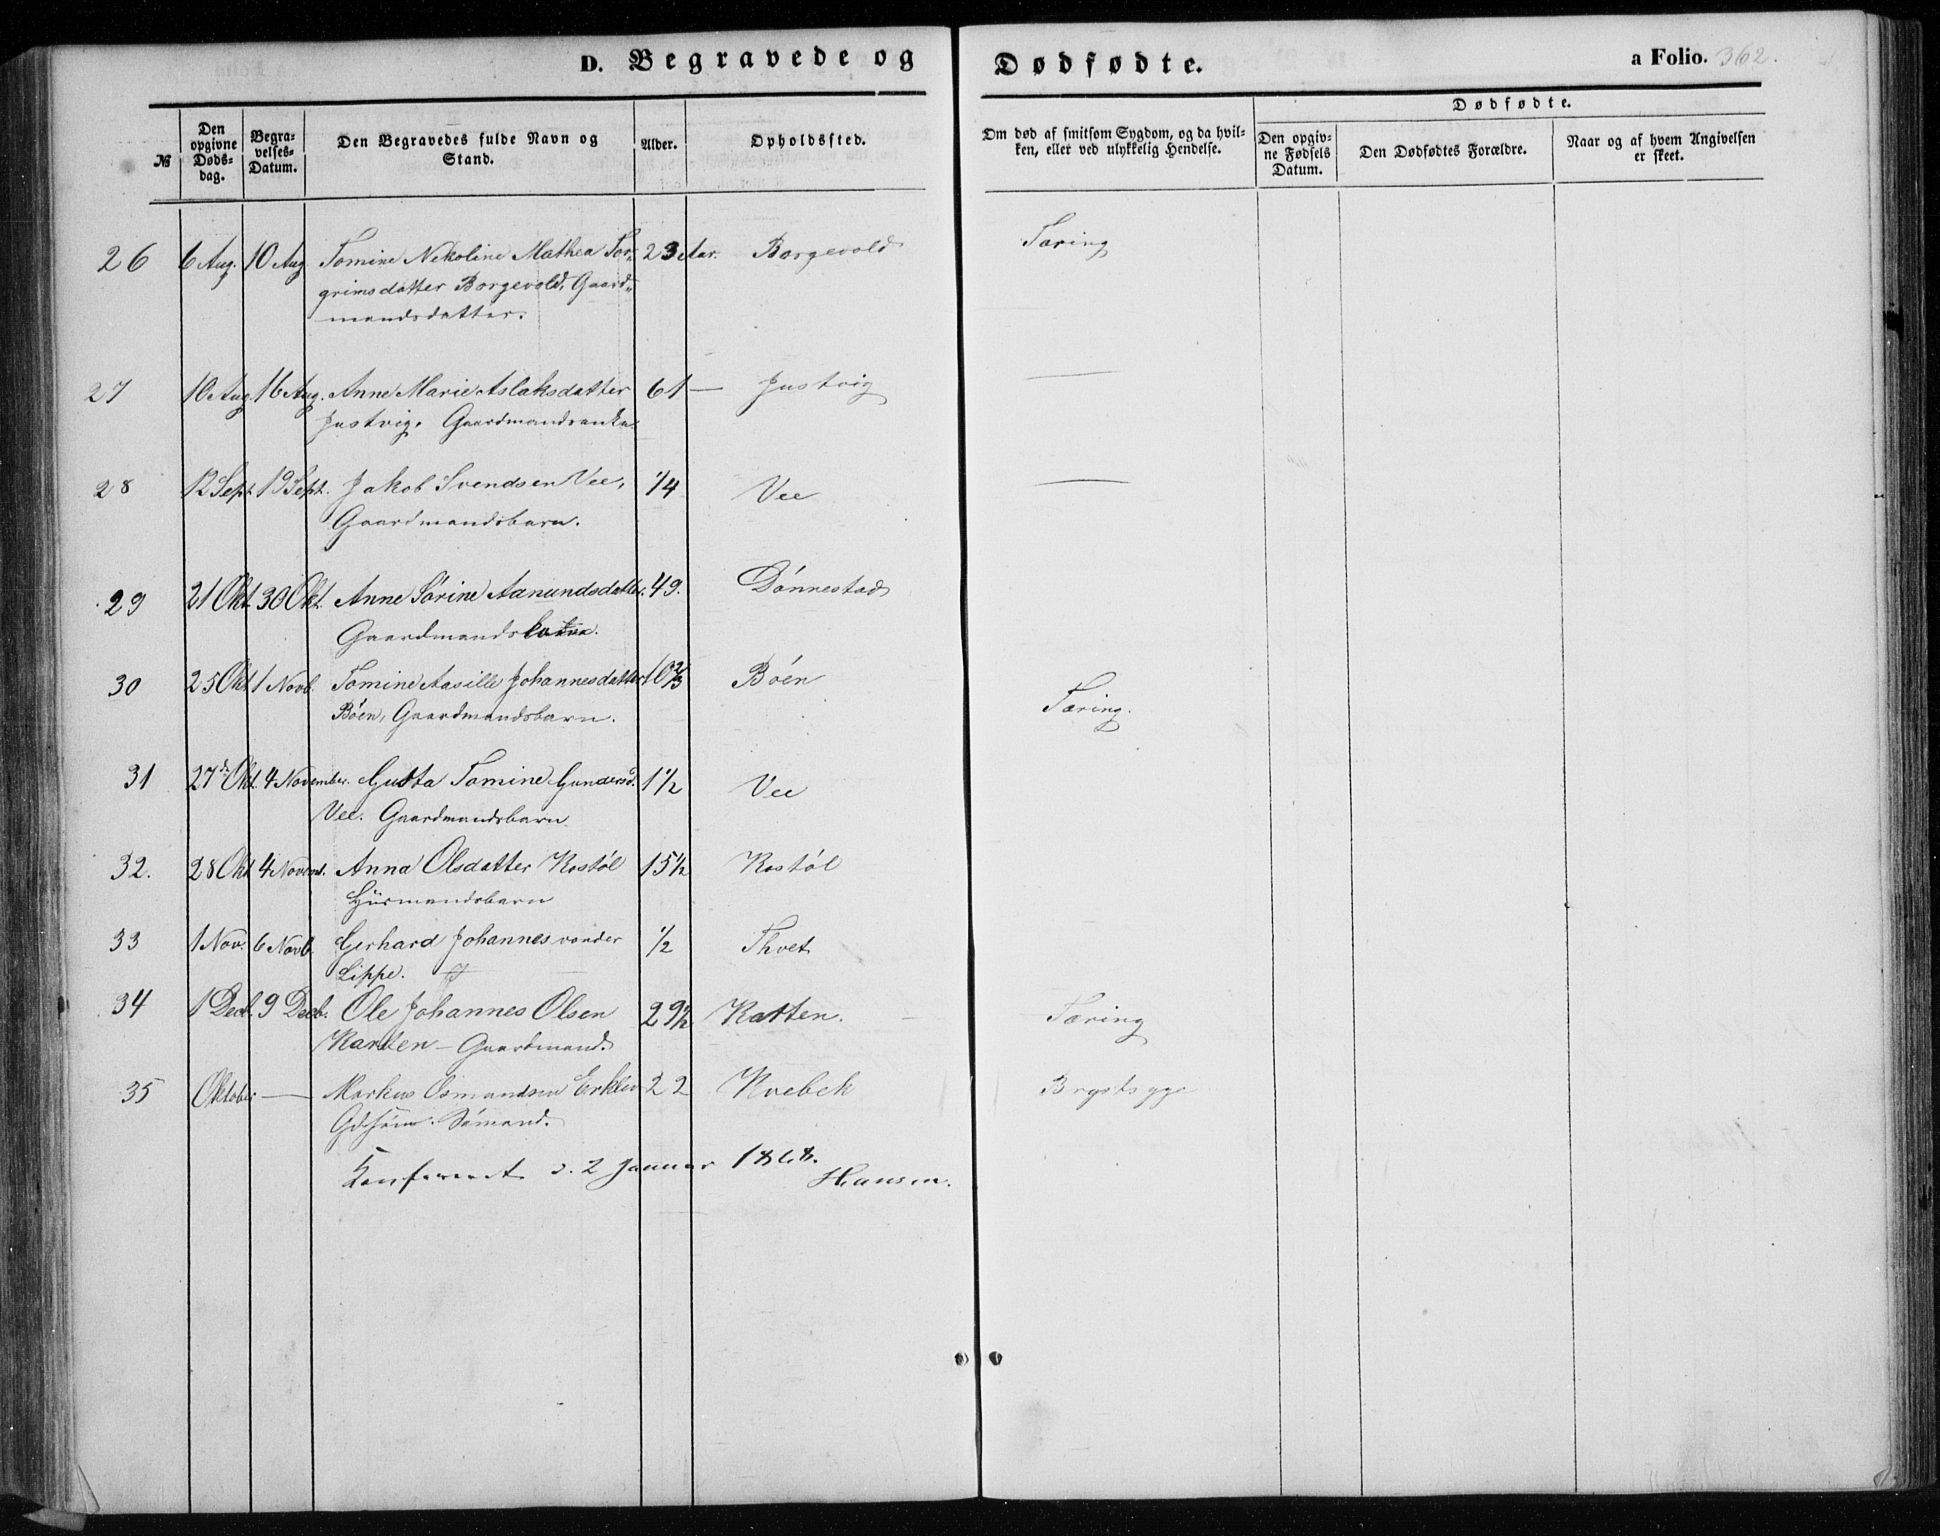 D. Begravede og Dødfødte. a Folio. 362.
№
Den opgivne Døds-dag.
Begra-velses-Datum.
Den Begravedes fulde Navn og Stand.
Alder.
Opholdssted.
Om død af smitsom Sygdom, og da hvil-ken, eller ved ulykkelig Hendelse.
Dødfødte.
Den opgiv-ne Fødsels Datum.
Den Dødfødtes Forældre.
Naar og af hvem Angivelsen er skeet.
26 6 Aug. 10 Aug Tomine Nikoline Mathea Tor- 23 Aar. Borgevold Tæring
grimsdatter Borgevold, Gaard-
mandsdatter.
27 10 Aug 16 Aug. Anne Marie Aslaksdatter 61 — Justvig —
Justvig. Gaardmandsenke.
28 12 Sept. 19 Sept. Jakob Svendsen Vee, 1/4 Vee —
Gaardmandsbarn.
29 21 Okt. 30 Okt. Anne Sørine Aanundsdatter. 49. Dønnestad
Gaardmandskone.
30 25 Okt 1 Novb. Tomine Aasille Johannesdatter 10 2/3 Bøen
Bøen, Gaardmandsbarn. Tæring.
31 27de Okt. 4 November. Gusta Tomine Gundersd. 1 1/2 Vee
Vee. Gaardmandsbarn
32. 28 Okt 4 Novemb. Anna Olsdatter Kostøl 15 1/2 Kostøl
Huusmandsbarn
33 1 Nov. 6 Novb. Gerhard Johannes vonder 1/2 Thvet
Lippe.
34 1 Decb. 9 Decb. Ole Johannes Olsen 29 1/2 Karten. Tæring
Karten — Gaardmand.
35 Oktober — Markus Osmundsen Erkleiv 22 Kvebek Brystsyge
Sømand.
Konfereret d. 2 Januar 1868.
Hansen.